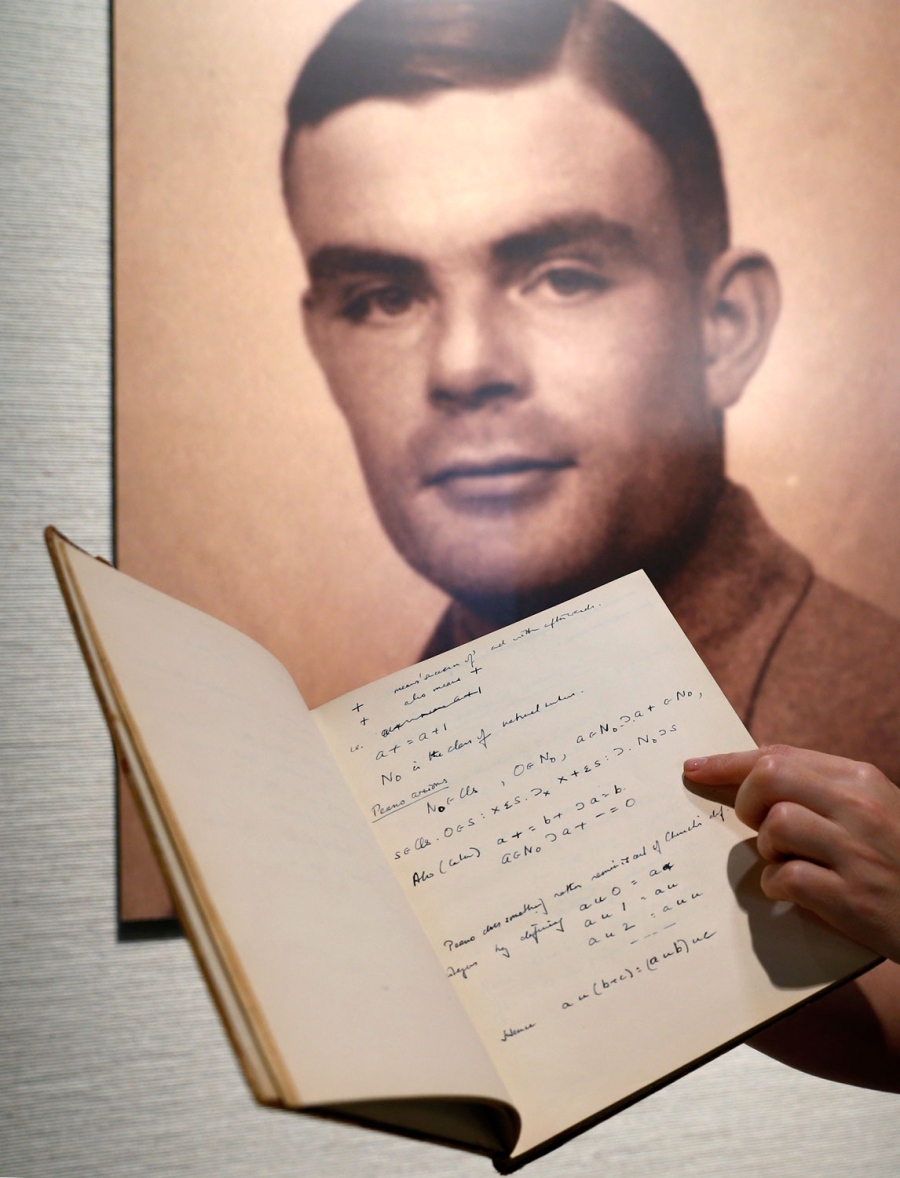 + means 'successor of' and with afterwards.
+ also means +
i.e. a+ = a+1
N₀ is the class of natural numbers.
Peano axioms
N₀ ∈ Cls , 0 ∈ N₀ , a ∈ N₀ .⊃. a+ ∈ N₀ ,
s ∈ Cls . 0 ∈ s : x ∈ s . ⊃ₓ x+ ∈ s : ⊃ . N₀ ⊃ s
Also (later) a+ = b+ ⊃ a = b.
a ∈ N₀ ⊃ a+ -= 0
Peano does something rather reminiscent of Church's
by defining a u 0 = a
a u 1 = a u
a u 2 = a u u
- - - -
Hence a u (b+c) = (a u b) u c